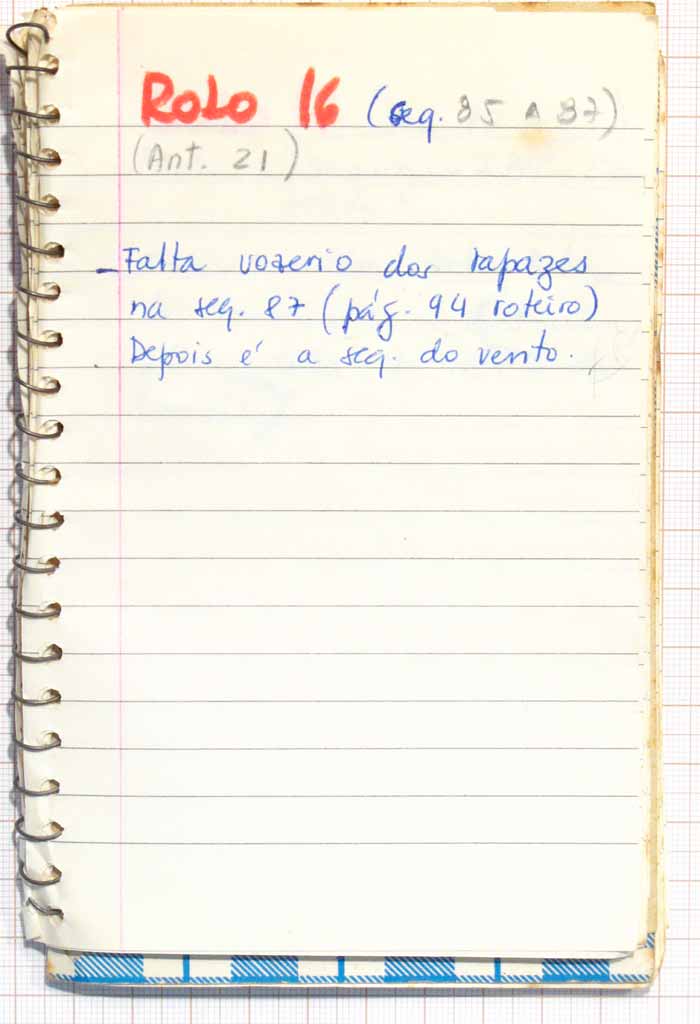 Rolo 16 (seq. 85 A 87)
(Ant. 21)
- Falta vozerio dos rapazes
na seq. 87 (pág. 94 roteiro)
Depois é a seq. do vento.